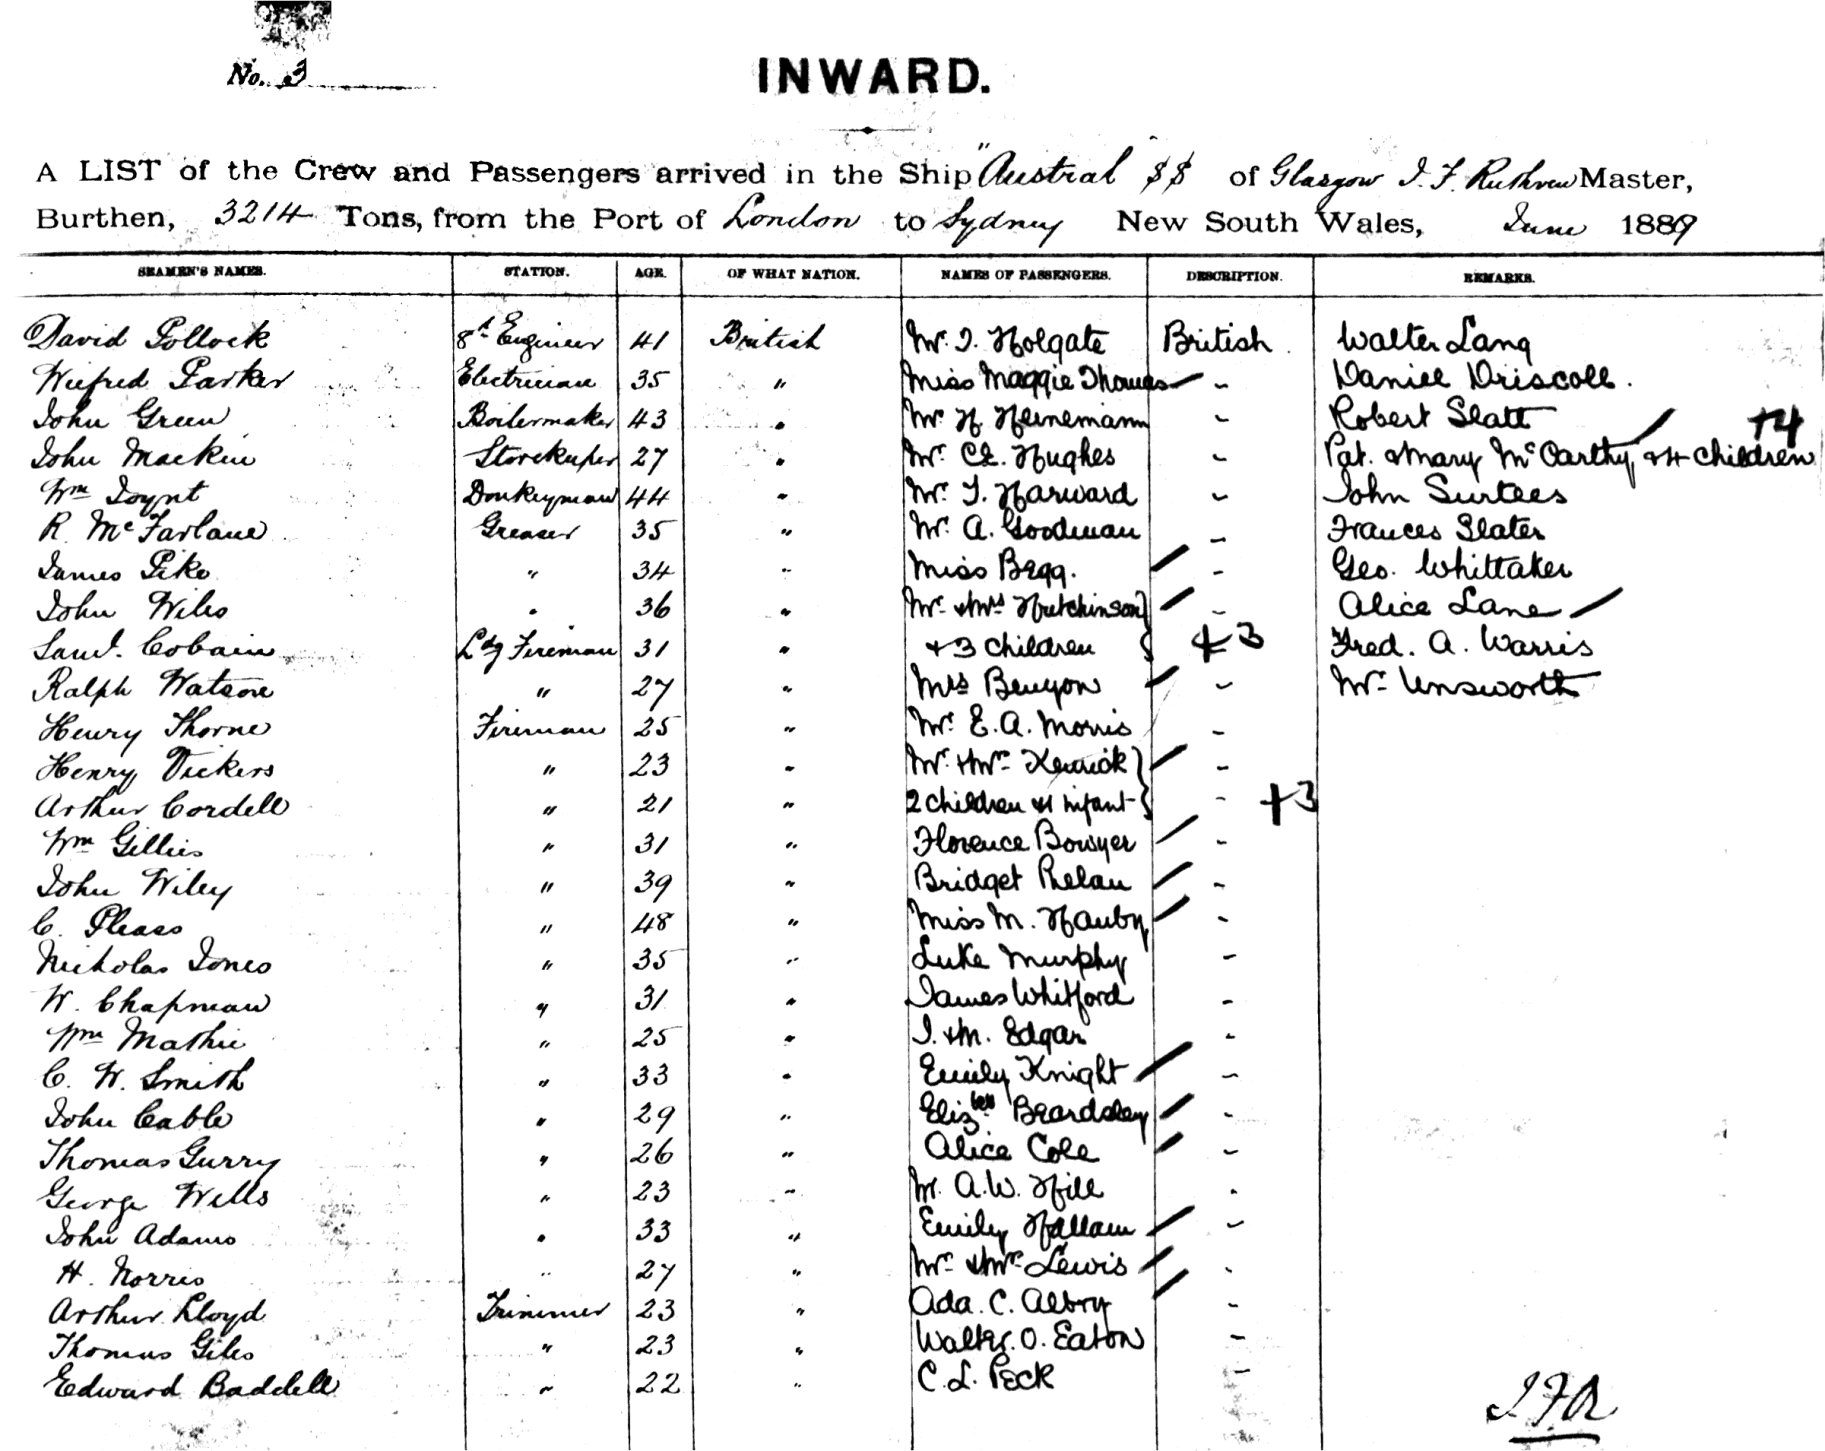 No. 3
INWARD.
A LIST of the Crew and Passengers arrived in the Ship "Austral SS of Glasgow J. F. Ruthven Master,
Burthen, 3214 Tons, from the Port of London to Sydney New South Wales, June 1889
SEAMEN'S NAMES. STATION. AGE. OF WHAT NATION. NAMES OF PASSENGERS. DESCRIPTION. REMARKS.
David Pollock 8th Engineer 41 British Mr. J. Holgate British Walter Lang
Wilfred Parker Electrician 35 " Miss Maggie Thomas – Daniel Driscoll.
John Green Boilermaker 43 " Mr H Heinemann – Robert Slatt +4
John Mackin Storekeeper 27 " Mr. CE. Hughes – Pat. & Mary McCarthy & 4 children
Wm Joynt Donkeyman 44 " Mr. J. Harward – John Surtees
R. McFarlane Greaser 35 " Mr. A. Goodman – Frances Slater
James Pike " 34 " Miss Begg. – Geo. Whittaker
John Wiles " 36 " Mr. & Mrs Hutchinson } – Alice Lane
Saml. Cobain Ldg Fireman 31 " + 3 children } +3 Fred. A. Warris
Ralph Watson " 27 " Mrs Benyon – Mr. Unsworth
Henry Thorne Fireman 25 " Mr. E. A. Morris –
Henry Vickers " 23 " Mr. & Mrs } –
Arthur Cordell " 21 " 2 children & 1 infant } – +3
Wm Gillies " 31 " Florence Bowyer –
John Wiley " 39 " Bridget Phelan –
C. Pleass " 48 " Miss M. Hanby –
Nicholas Jones " 35 " Luke Murphy –
W. Chapman " 31 " James Whitford –
Wm Mathie " 25 " J. & M. Edgar –
C. W. Smith " 33 " Emily Knight –
John Cable " 29 " Elizbeth Beardsley –
Thomas Gurry " 26 " Alice Cole –
George Wells " 23 " Mr. A.W. Hill –
John Adams " 33 " Emily Hallam –
H. Norris " 27 " Mr. & Mrs Lewis –
Arthur Lloyd Trimmer 23 " Ada. C. Albry –
Thomas Giles " 23 " Walter. O. Eaton –
Edward Baddell " 22 " C. L. Peck –